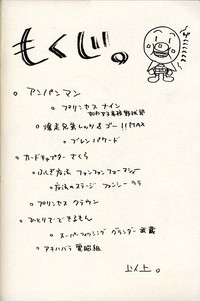 もくじ。
。アンパンマン
。プリンセス ナイン
如月女子高校野球部
。爆走兄弟レッツ&ゴー!!MAX
。ブレンパワード
。カードキャプター さくら
。ふしぎ魔法 ファンファンファーマシィ
。魔法のステージ ファンシーララ
。プリンセス クラウン
。ひとりでできるもん
。スーパーフィッシング グランダー武蔵
。アキハバラ電脳組
以上。